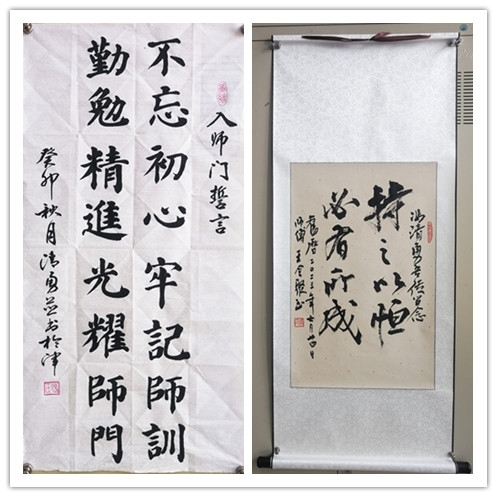 入师门誓言
不忘初心牢記師訓
勤勉精進光耀師門
癸卯秋月清勇並书於津
冯清勇吾徒留念
持之以恒
必有所成
舊曆二〇二三年七月廿日
师傅王金聚书